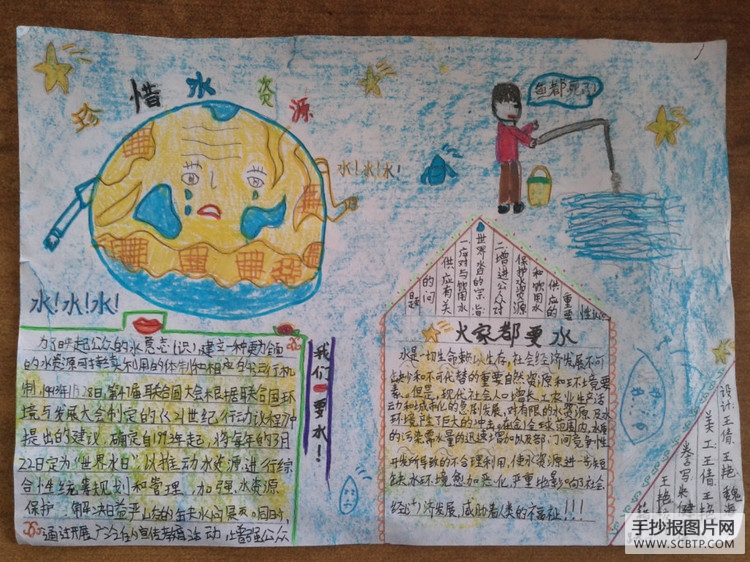 珍惜水资源
水!水!水!
鱼都死了
水!水!水!
为了唤起公众的水意志(识),建立一种更为全面
的水资源可持续利用的体制和相应的运行机
制,1993年1月28日,第47届联合国大会根据联合国环
境与发展大会制定的《21世纪行动议程》中
提出的建议,确定自1993年起,将每年的3月
22日定为"世界水日",以推动水资源进行综
合性统筹规划和管理,加强水资源
保护,解决日益严峻的缺水问题。同时
通过开展广泛的宣传教育活动,增强公众
我们要水!
世界水日的宗旨
一应对与饮用水
供应有关
的问
题
二增进公众对
保护水资源
和饮用水
供应的
重要
性
大家都要水
水是一切生命赖以生存,社会经济发展不可
缺少和不可代替的重要自然资源和环境要
素。但是,现代社会人口增长、工农业生产活
动和城市化的急剧发展,对有限的水资源及水
环境产生了巨大的冲击。在全球范围内,水质
的污染需水量的迅速增加以及部门间竞争性
开发所导致的不合理利用,使水资源进一步短
缺,水环境愈加恶化,严重地影响了社会
经济发展,威胁着人类的福祉!!!
设计:王倩 王艳 魏
美工:王倩 王
书写:朱健
王艳
手抄报图片网
WWW.SCBTP.COM